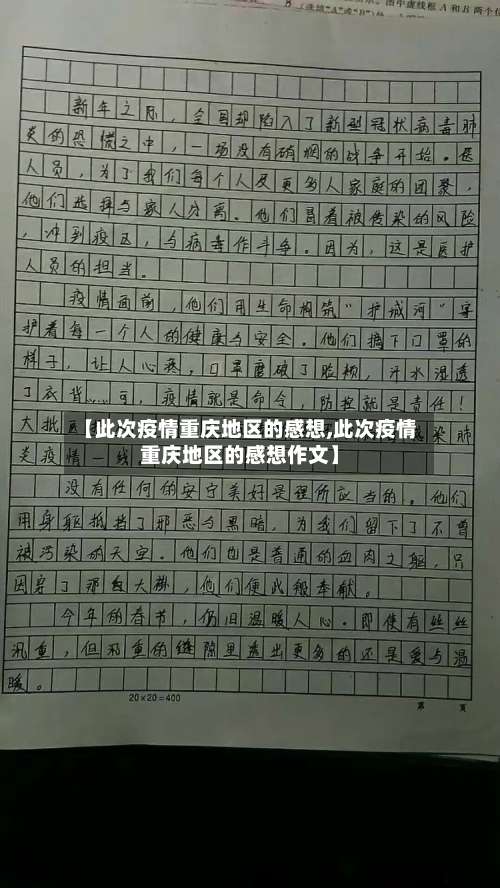 图中虚线框A和B两个位
8（选填“A”或“B”）
新年之际，全国却陷入了新型冠状病毒肺
炎的恐慌之中，一场没有硝烟的战争开始。医
人员，为了我们每个人及更多人家庭的团聚，
他们选择与家人分离。他们冒着被传染的风险
，冲到疫区，与病毒作斗争。因为，这是医护
人员的担当。
疫情面前，他们用生命构筑“护城河”守
护着每一个人的健康与安全。他们摘下口罩的
样子，让人心疼，口罩磨破了脸颊，汗水湿透
了衣背……可，疫情就是命令，防控就是责任！
大批医 感染肺
炎疫情一线
【此次疫情重庆地区的感想,此次疫情
重庆地区的感想作文】
没有任何的安宁美好是理所应当的。他们
用身躯抵挡了邪恶与黑暗，为我们留下了不曾
被污染的天空。他们也是普通的血肉之躯，只
因穿了那白大褂，他们便此般奉献。
今年的春节，仍旧温暖人心。即使有丝丝
沉重，但沉重的缝隙里透出更多的还是爱与温
暖。
20×20=400
第 页